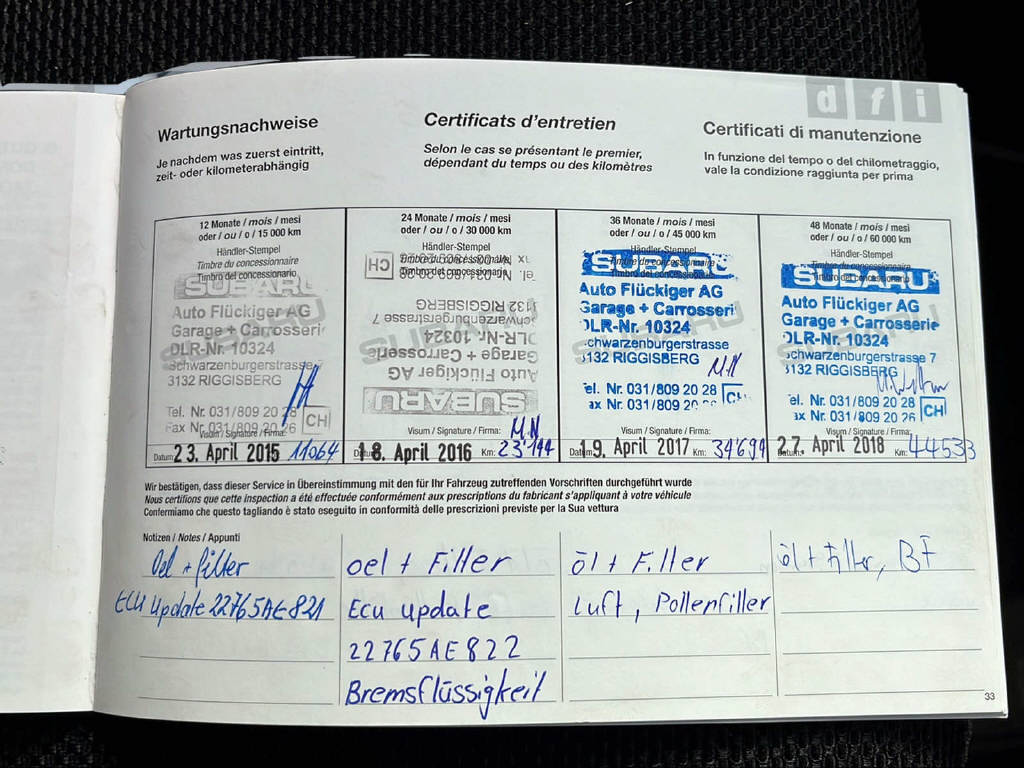 dfi
Wartungsnachweise
Je nachdem was zuerst eintritt,
zeit- oder kilometerabhängig
Certificats d'entretien
Selon le cas se présentant le premier,
dépendant du temps ou des kilomètres
Certificati di manutenzione
In funzione del tempo o del chilometraggio,
vale la condizione raggiunta per prima
12 Monate / mois / mesi
oder / ou / o / 15 000 km
Händler-Stempel
Timbre du concessionnaire
Timbro del concessionario
SUBARU
Auto Flückiger AG
Garage + Carrosserie
DLR-Nr. 10324
Schwarzenburgerstrasse
3132 RIGGISBERG
Tel. Nr. 031/809 20 28
Fax Nr. 031/809 20 26
CH
Visum / Signature / Firma:
Datum: 23. April 2015 11064
24 Monate / mois / mesi
oder / ou / o / 30 000 km
Händler-Stempel
Timbre du concessionnaire
Timbro del concessionario
SUBARU
Auto Flückiger AG
Garage + Carrosserie
DLR-Nr. 10324
Schwarzenburgerstrasse 7
3132 RIGGISBERG
CH
Visum / Signature / Firma: M.N
Datum: 18. April 2016 Km: 23'144
36 Monate / mois / mesi
oder / ou / o / 45 000 km
Händler-Stempel
Timbre du concessionnaire
Timbro del concessionario
SUBARU
Auto Flückiger AG
Garage + Carrosseri
DLR-Nr. 10324
chwarzenburgerstrasse
3132 RIGGISBERG
M.N
el. Nr. 031/809 20 28
ax Nr. 031/809
CH
Visum / Signature / Firma:
Datum: 19. April 2017 Km: 34'694
48 Monate / mois / mesi
oder / ou / o / 60 000 km
Händler-Stempel
Timbre du concessionnaire
Timbro del concessionario
SUBARU
Auto Flückiger AG
Garage + Carrosserie
DLR-Nr. 10324
chwarzenburgerstrasse 7
3132 RIGGISBERG
el. Nr. 031/809 20 28
ax Nr. 031/809 20 26
CH
Visum / Signature / Firma:
Datum: 27. April 2018 Km: 44533
Wir bestätigen, dass dieser Service in Übereinstimmung mit den für Ihr Fahrzeug zutreffenden Vorschriften durchgeführt wurde
Nous certifions que cette inspection a été effectuée conformément aux prescriptions du fabricant s'appliquant à votre véhicule
Confermiamo che questo tagliando è stato eseguito in conformità delle prescrizioni previste per la Sua vettura
Notizen / Notes / Appunti
Oel + filter
ECU Update 22765AE821
oel + Filter
Ecu update
22765AE822
Bremsflüssigkeit
öl + Filter
Luft, Pollenfilter
öl + Filter, BF
33